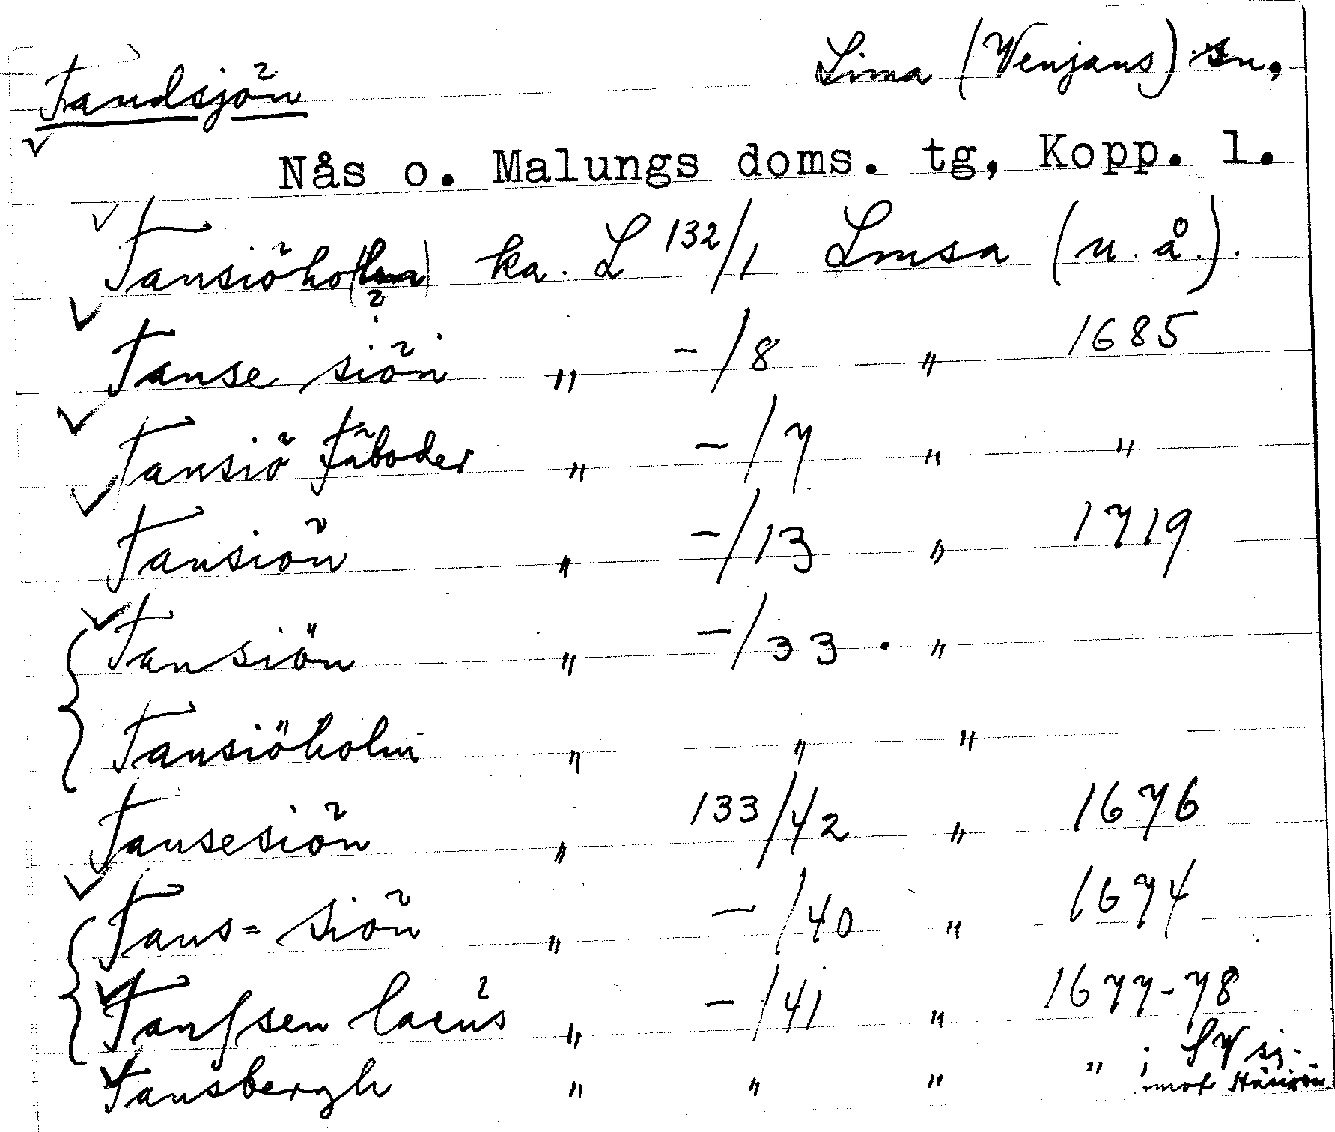 Tandsjön Lima (Venjans) sn.
Nås o. Malungs doms. tg, Kopp. l.
Tansiöho(lm) ? ka. L 132/1 Lmsa (u. å.).
Tanse siön " -/8 " 1685
Tansiö fäboder " -/7 " "
Tansiön " -/13 " 1719
Tansiön " -/33 . "
Tansiöholm " " "
Tansesiön " 133/42 " 1676
Tans= siön " -/40 " 1674
Tanssen lacus " -/41 " 1677-78
Tansbergh " " " " ;